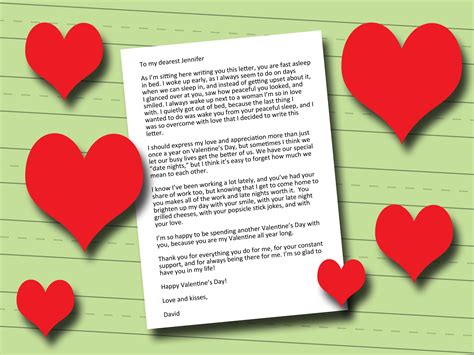 To my dearest Jennifer
As I'm sitting here writing you this letter, you are fast asleep
in bed. I woke up early, as I always seem to do on days
when we can sleep in, and instead of getting upset about it,
I glanced over at you, saw how peaceful you looked, and
smiled. I always wake up next to a woman I'm so in love
with. I quietly got out of bed, because the last thing I
wanted to do was wake you from your peaceful slumber, and I
was so overcome with love that I decided to write this
letter.
I should express my love and appreciation more than just
once a year on Valentine's Day, but sometimes I think we
let our busy lives get the better of us. We have our special
"date nights," but I think it's easy to forget how much we
mean to each other.
I know I've been working a lot lately, and you've had your
share of work too, but knowing that I get to come home to
you makes all of the work and late nights worth it. You
brighten up my day with your smile, with your late night
grilled cheeses, with your popsicle stick jokes, and with
your love.
I'm so happy to be spending another Valentine's Day with
you, because you are my Valentine all year long.
Thank you for everything you do for me, for your constant
support, and for always being there for me. I'm so glad to
have you in my life!
Happy Valentine's Day!
Love and kisses,
David